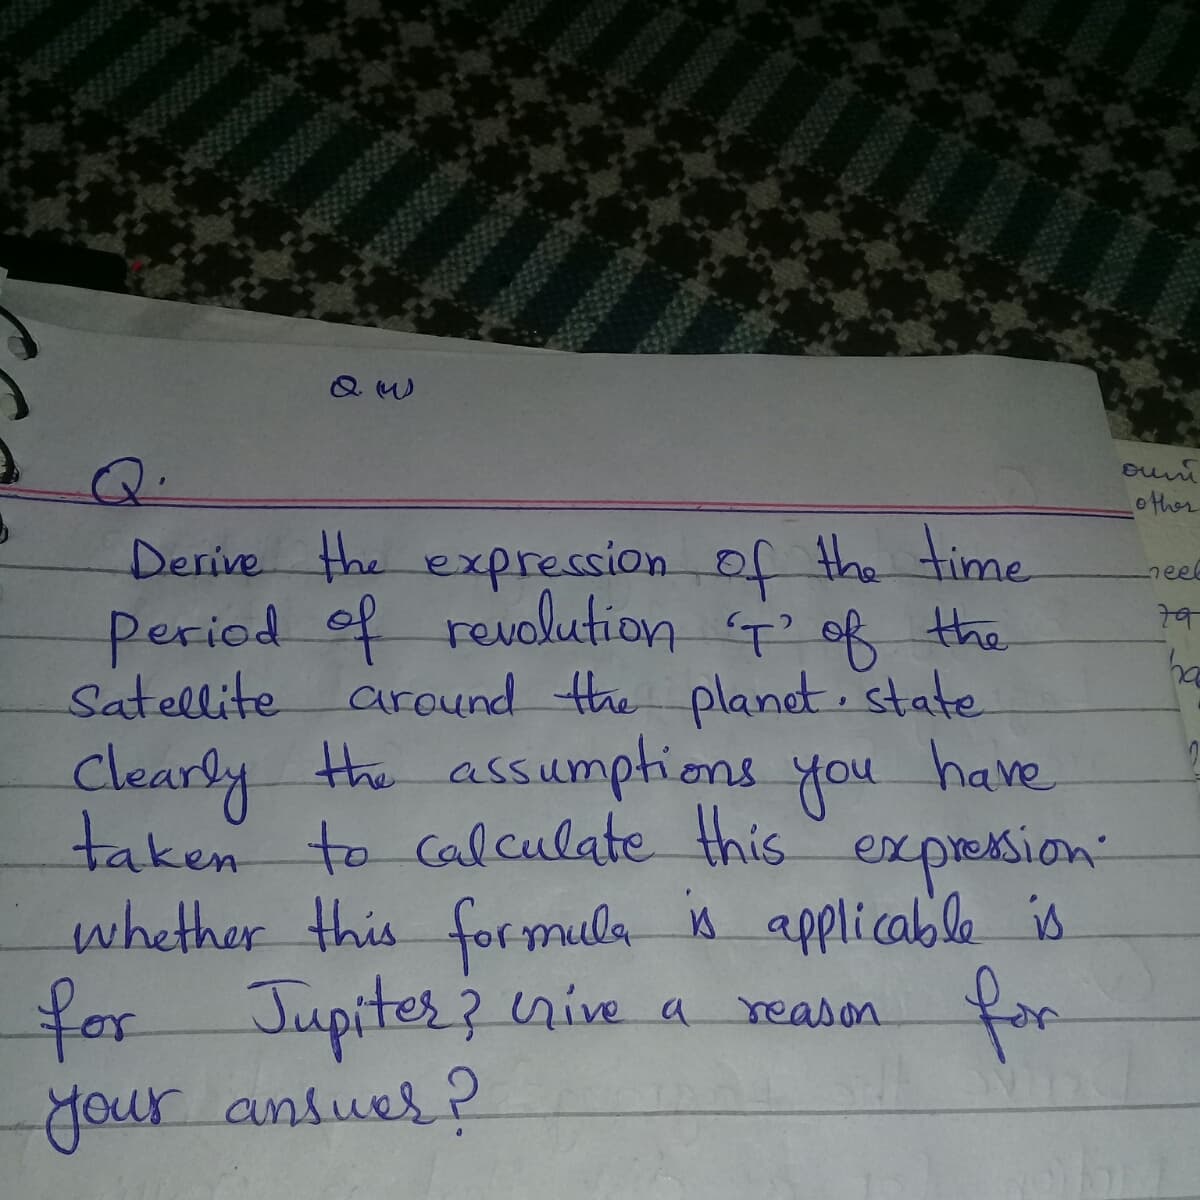 Q.
Derive the expression of the time
period of revolution 'T' of the
satellite around the planet. state
clearly the assumptions you have
taken to calculate this expression.
whether this formula is applicable is
for Jupiter? Give a reason for
your answer?
other